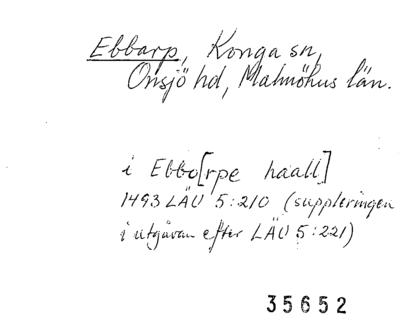 Ebbarp, Konga sn,
Onsjö hd, Malmöhus län.
i Ebbo[rpe haall]
1493 LÄU 5:210 (suppleringen
i utgåvan efter LÄU 5:221)
35652